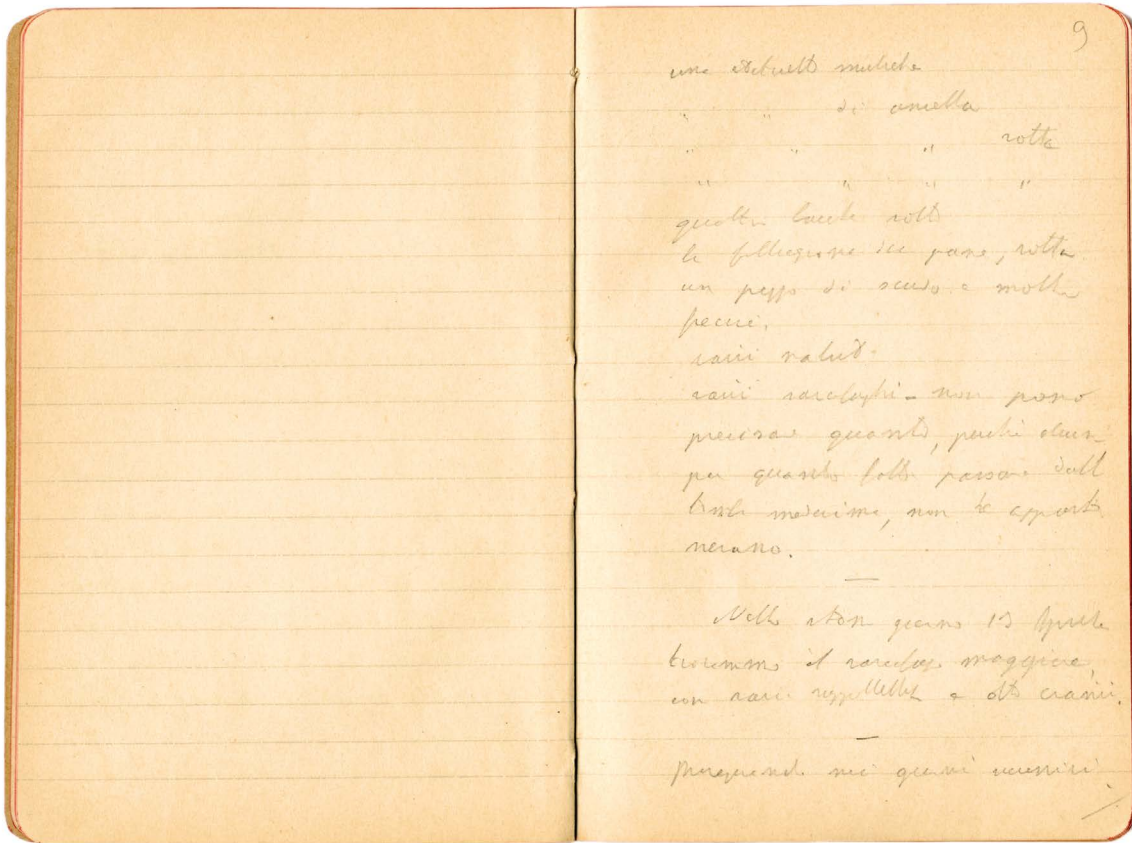 9
una statuetta muliebre
" " di ancella
" " " rotta
" " " "
quattro rotte
la del pane, rotta
un pezzo di scudo e molte
frecce.
varii
varii sarcofaghi - non posso
precisare quanti, perchè alcuni
per quanto fatti passare dalla
tomba medesima, non le apparte
nevano.
—
Nello stesso giorno 13 Aprile
trovammo il sarcofago maggiore,
con varie suppellettili e otto cranii.
—
Proseguendo nei giorni successivi